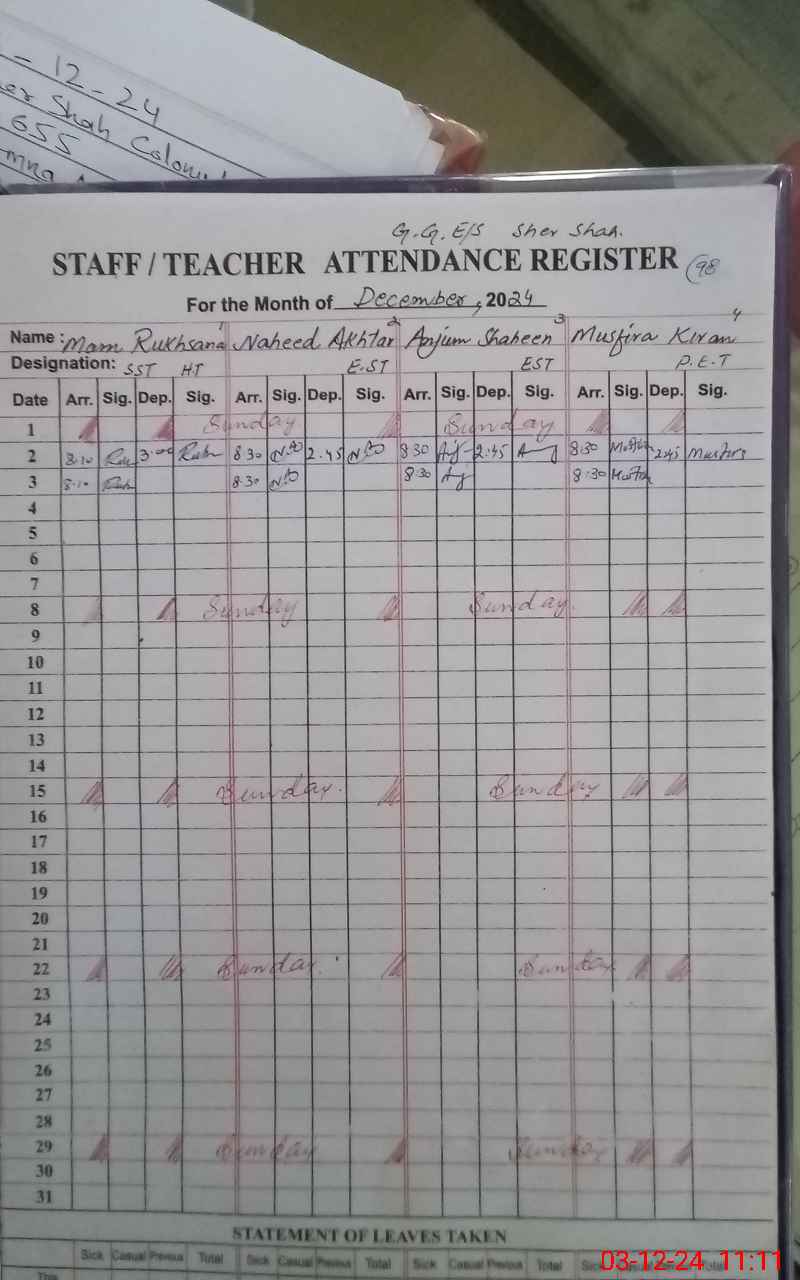 - 12 - 24
er Shah Colony
655
mna
G.G. E/S Sher Shah.
STAFF / TEACHER ATTENDANCE REGISTER (98
For the Month of December, 2024
1 2 3 4
Name : Mam Rukhsana Naheed Akhtar Anjum Shaheen Musfira Kiran
Designation: SST HT E.ST EST P.E.T
Date Arr. Sig. Dep. Sig. Arr. Sig. Dep. Sig. Arr. Sig. Dep. Sig. Arr. Sig. Dep. Sig.
1 Sunday. Sunday
2 8:10 3:00 Rukh 8 30 2.45 8 30 2:45 8:30 2:45 Musfira
3 8:10 Rukh 8.30 8:30 8:30
4
5
6
7
8 Sunday Sunday.
9
10
11
12
13
14
15 Sunday. Sunday
16
17
18
19
20
21
22 Sunday. Sunday
23
24
25
26
27
28
29 Sunday Sunday
30
31
STATEMENT OF LEAVES TAKEN
Sick Casual Previous Total Sick Casual Previous Total Sick Casual Previous Total Sick Total
This
03-12-24 11:11